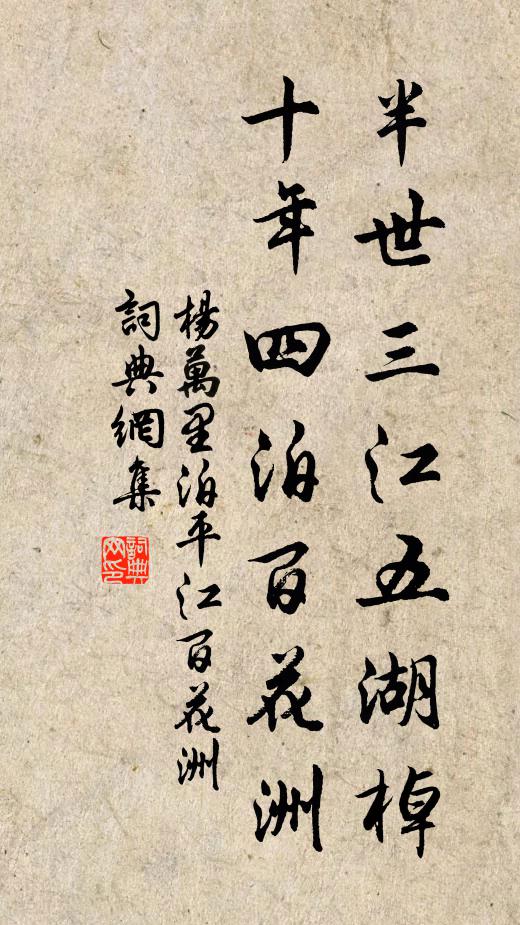 半世三江五湖棹
十年四泊百花洲
楊萬里泊平江百花洲
詞典網集
詞典网印